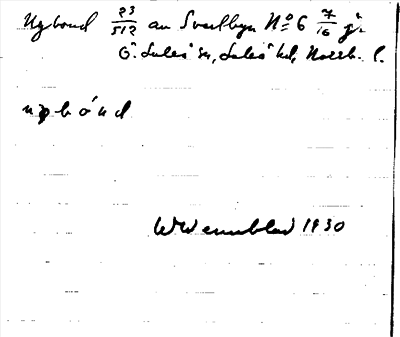 Nybond 23/512 av Svartbyn No 6 7/16 jr
Ö. Luleå sn, Luleå hd, Norrb. l.
nybónd
W Wennblad 1930